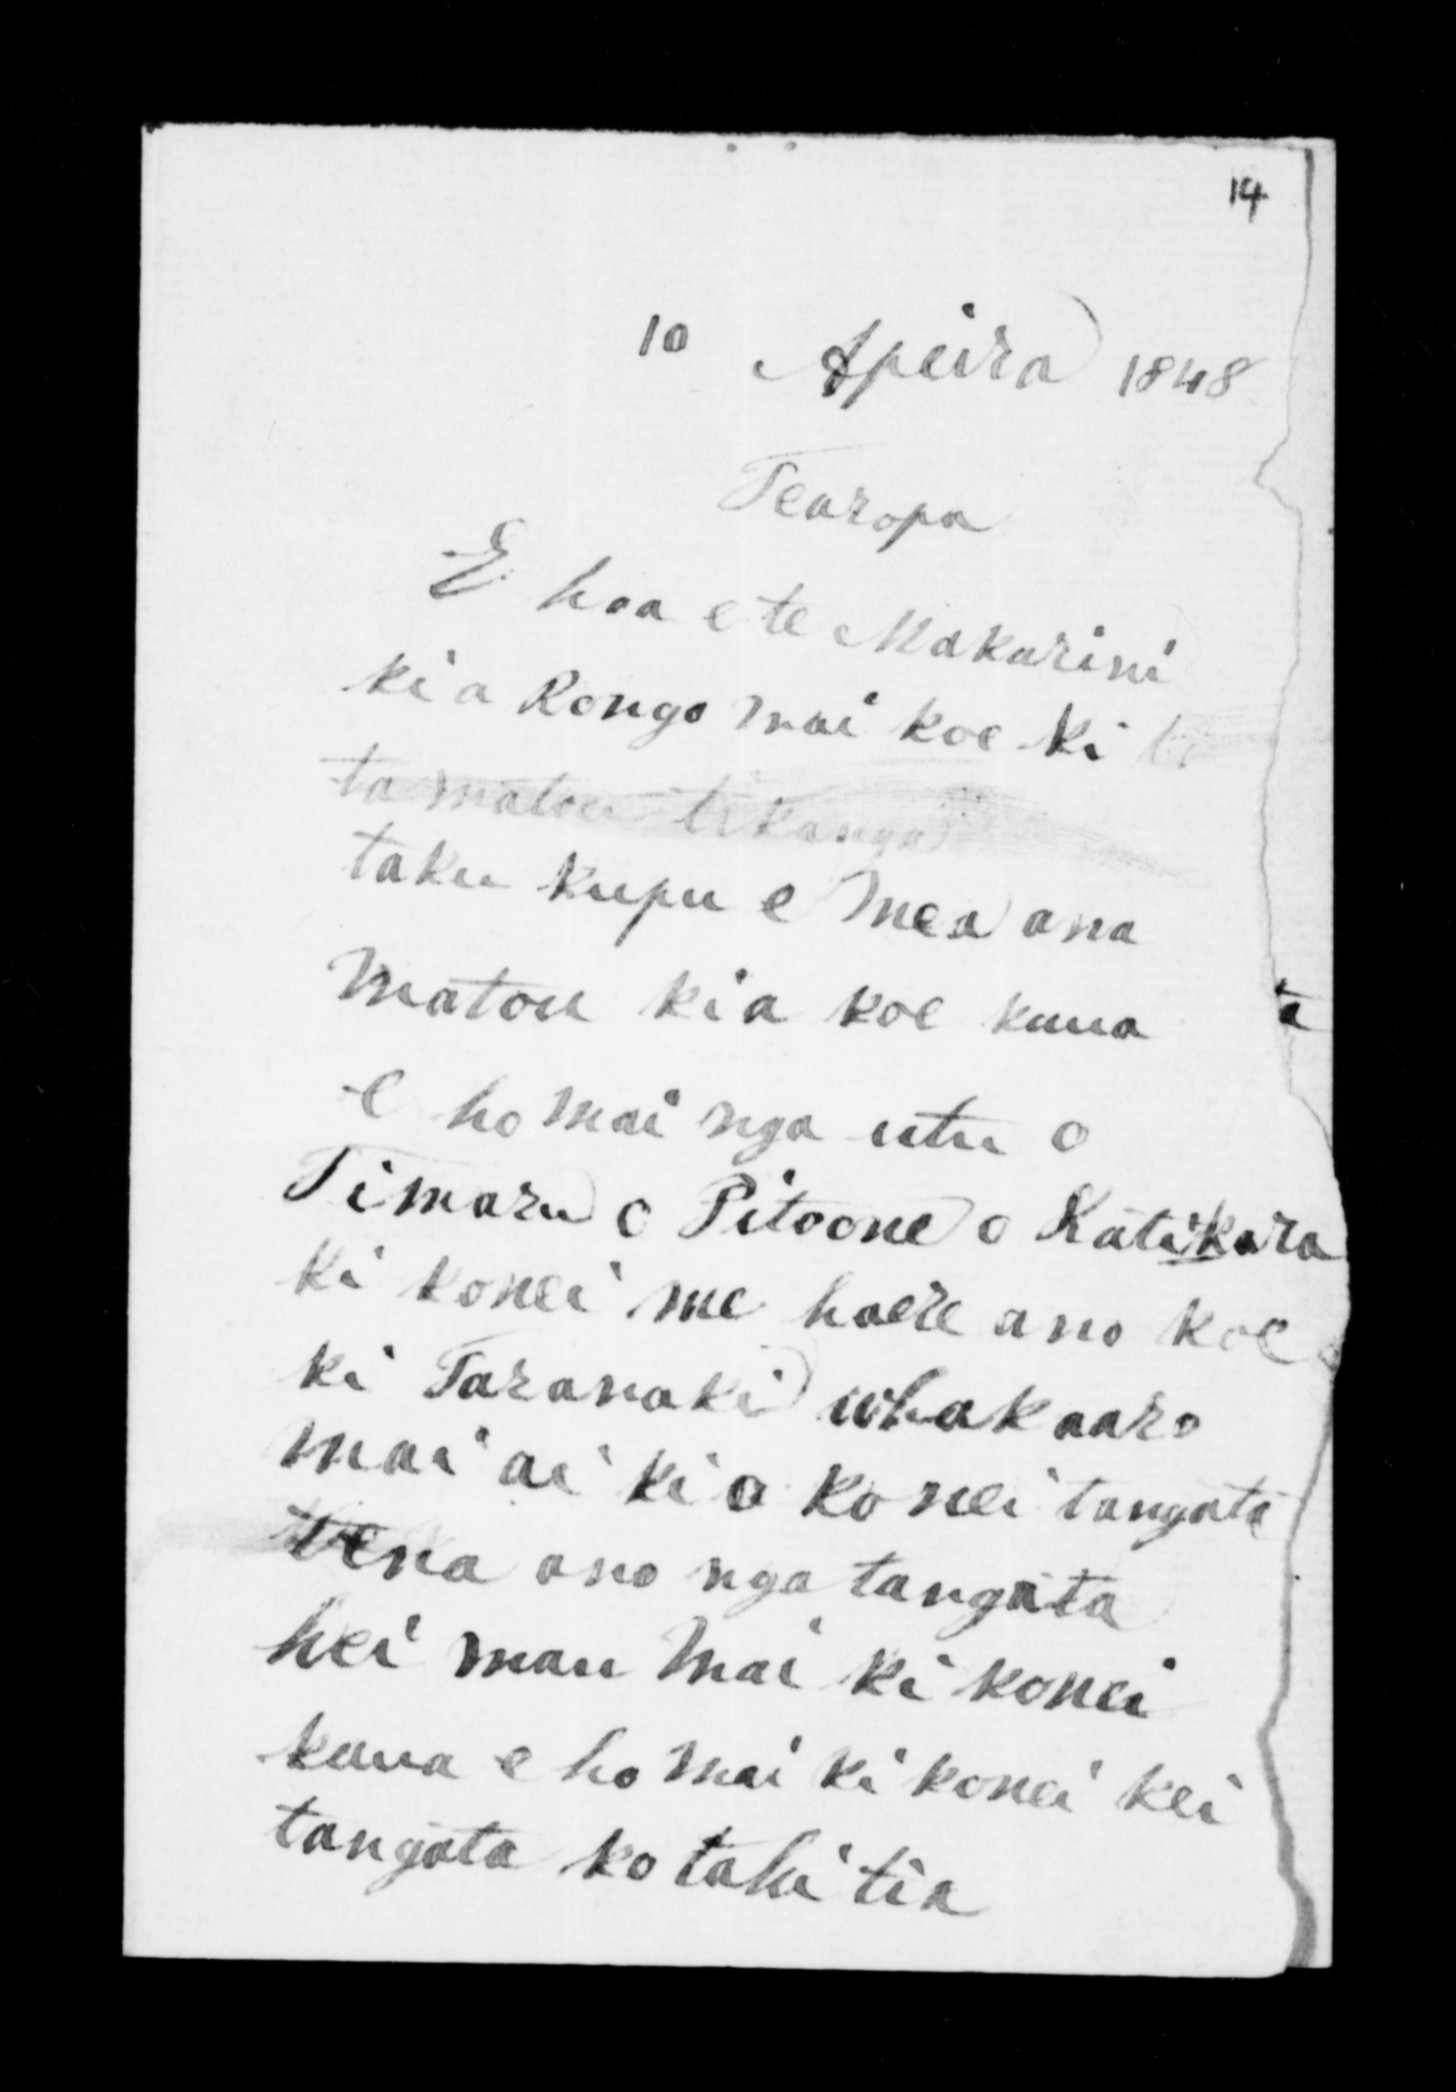 14
10 Apeira 1848
Tearopa
E hoa e te Makarini
ki a Rongo mai koe ki ta
ta matou tikanga
taku kupu e mea ana
matou ki a koe kaua
ta
e ho mai nga utu o
Timaru o Pitoone o Katikara
ki konei me haere ano koe
ki Taranaki whakaaro
mai ai ki o konei tangata
tena ano nga tangata
hei mau mai ki konei
kaua e ho mai ki konei kei
tangata ko tahi tia